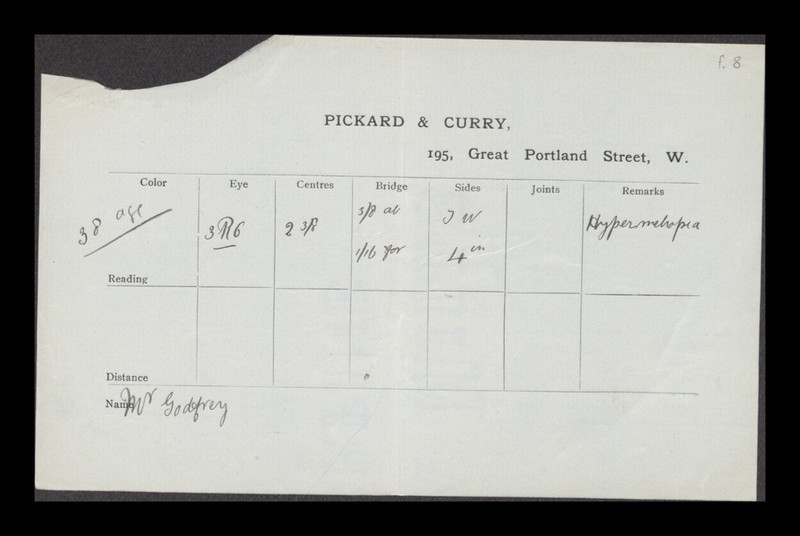 f. 8
PICKARD & CURRY,
195, Great Portland Street, W.
Color Eye Centres Bridge Sides Joints Remarks
38 age
3 6 2 3/8 3/8 ab J W Hypermetropia
1/16 for 4 in
Reading
Distance
Name Mr Godfrey